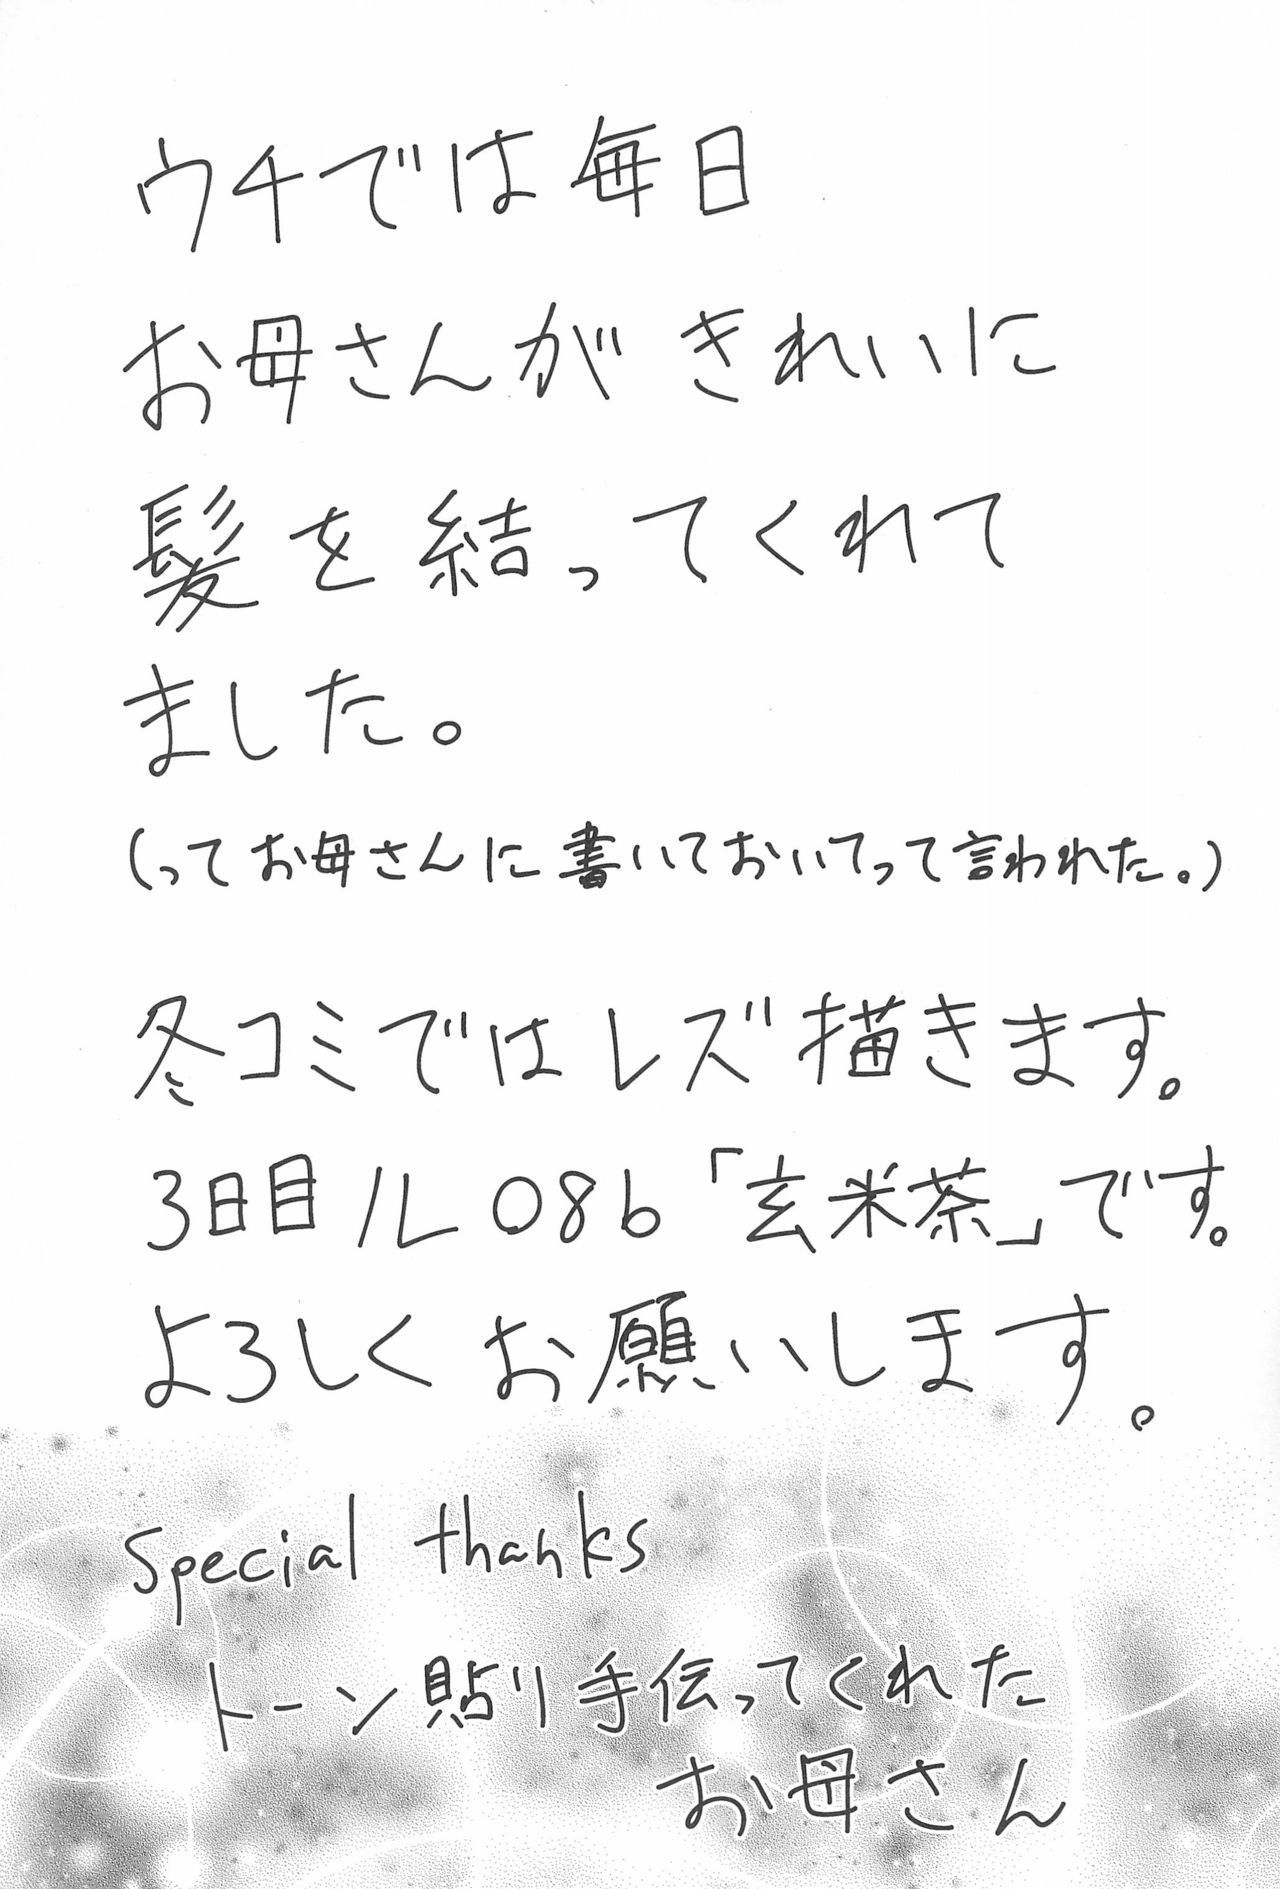 ウチでは毎日
お母さんが きれいに
髪を結ってくれて
ました。
(ってお母さんに書いておいてって言われた。)
冬コミではレズ描きます。
3日目ル08b「玄米茶」です。
よろしくお願いします。
Special thanks
トーン貼り手伝ってくれた
お母さん